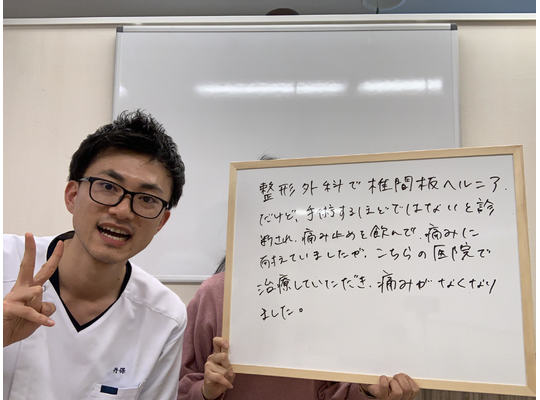 整形外科で椎間板ヘルニア、
だけど、手術するほどではないと診
断され、痛み止めを飲んで、痛みに
耐えていましたが、こちらの医院で
治療していただき、痛みがなくなり
ました。
丹保